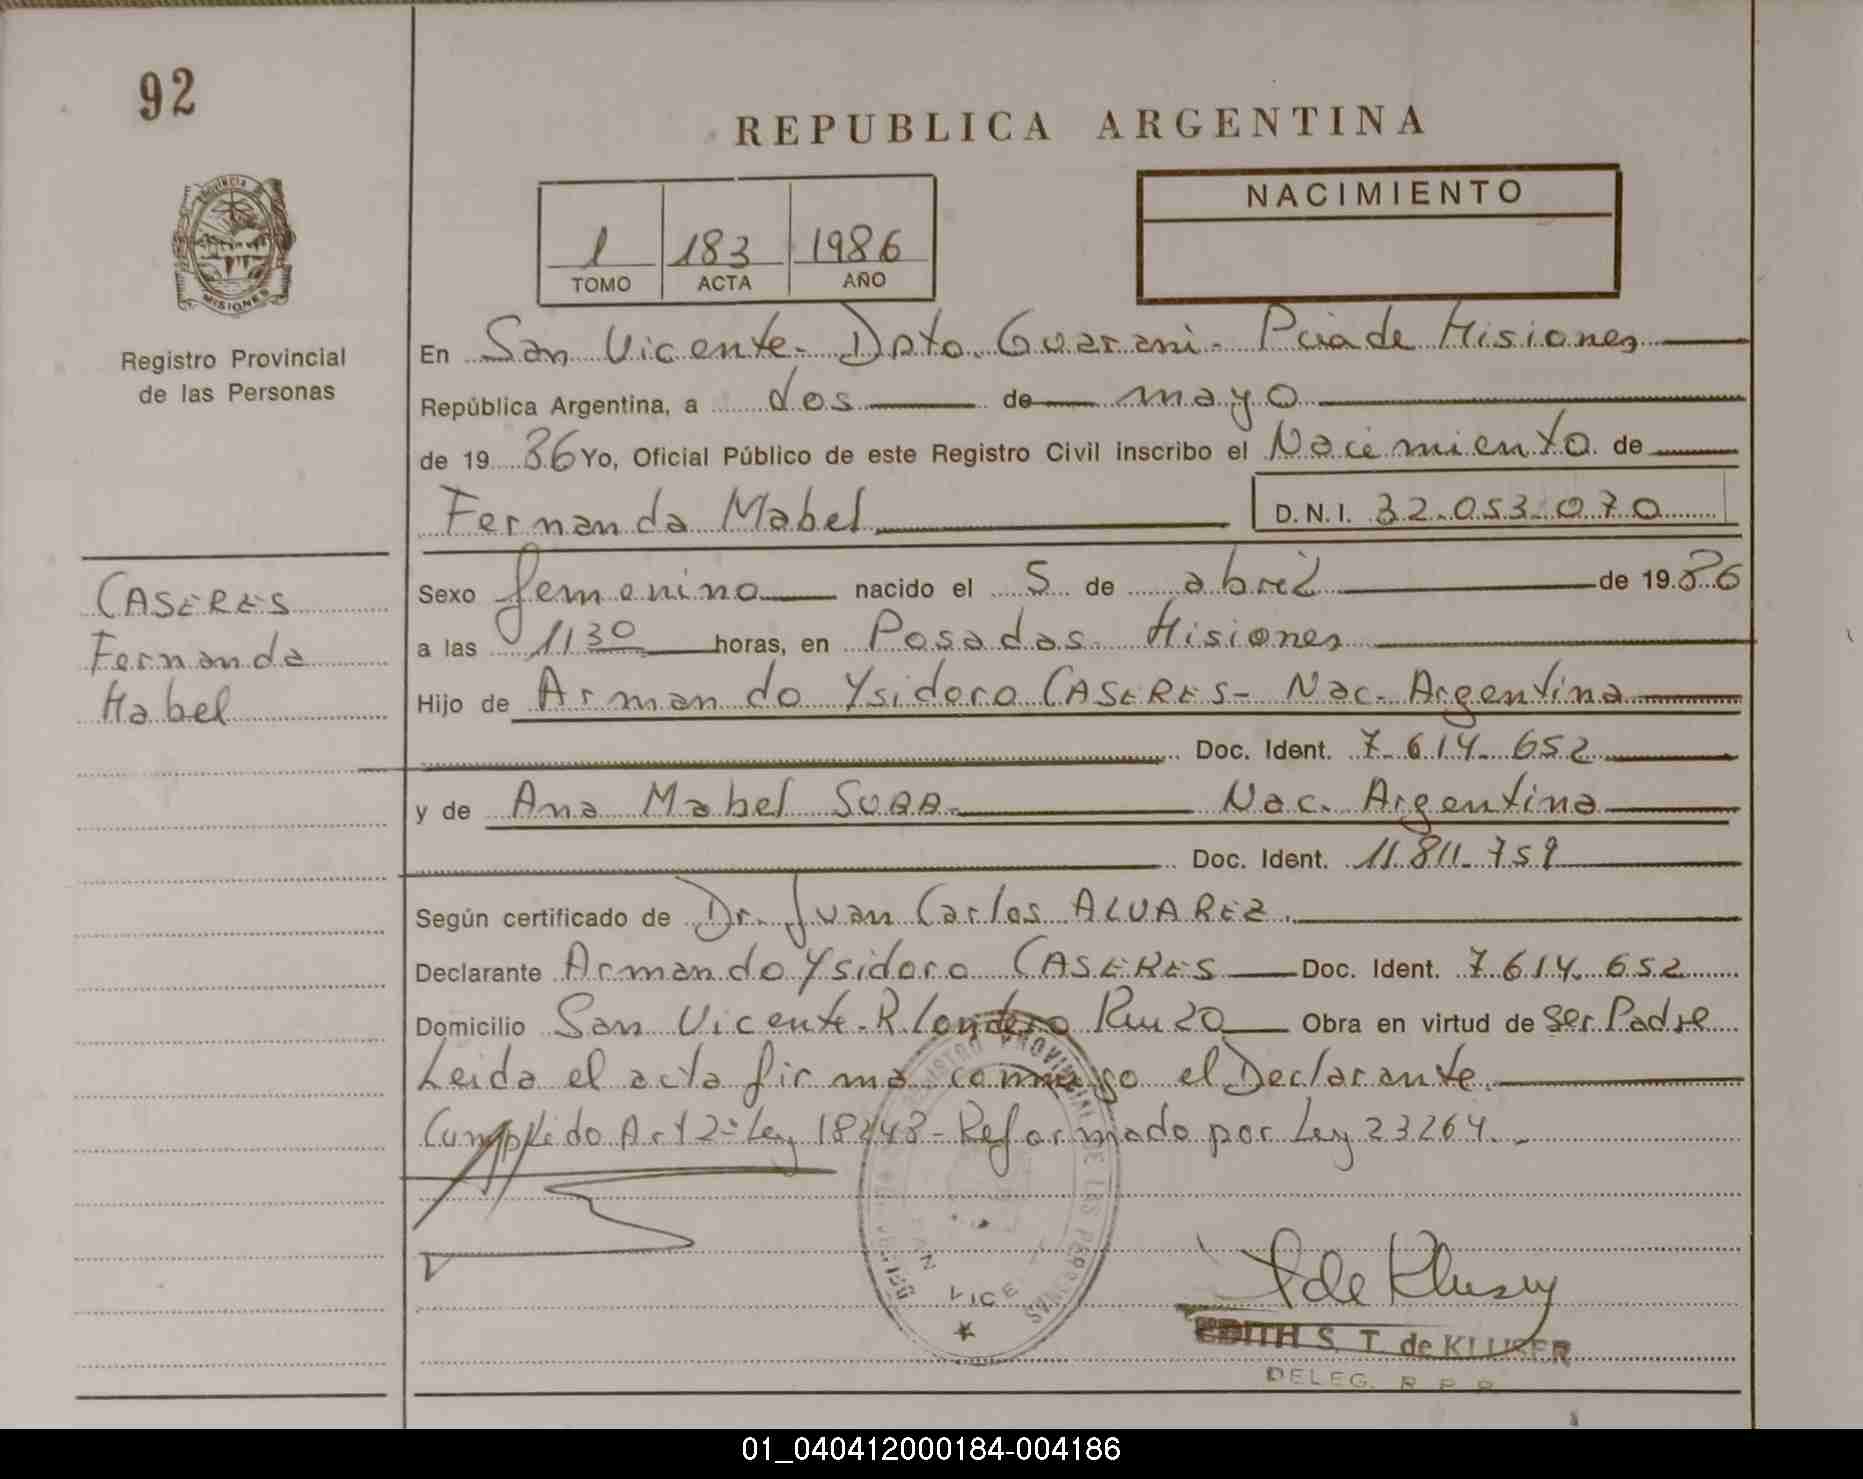 92
REPUBLICA ARGENTINA
NACIMIENTO
1 183 1986
TOMO ACTA AÑO
MISIONES
Registro Provincial
de las Personas
En San Vicente - Dpto. Guarani - Pcia de Misiones
República Argentina, a dos de mayo
de 19 86 Yo, Oficial Público de este Registro Civil inscribo el Nacimiento de
Fernanda Mabel D.N.I. 32.053.070
CASERES
Fernanda
Mabel
Sexo femenino nacido el 5 de abril de 19 86
a las 11 30 horas, en Posadas - Misiones
Hijo de Armando Ysidoro CASERES - Nac. Argentina
Doc. Ident. 7.614.652
y de Ana Mabel Nac. Argentina
Doc. Ident. 11.811.759
Según certificado de Dr. Juan Carlos ALVAREZ.
Declarante Armando Ysidoro CASERES Doc. Ident. 7.614.652
Domicilio San Vicente - R. Obra en virtud de Ser Padre
Leida el acta firma conmigo el Declarante.
Cumplido Art 2º Ley 18248 - Reformado por Ley 23264.-
REGISTRO PROVINCIAL DE LAS PERSONAS
EDITH S. T. de KLUSER
DELEG. R. P. P.
01_040412000184-004186